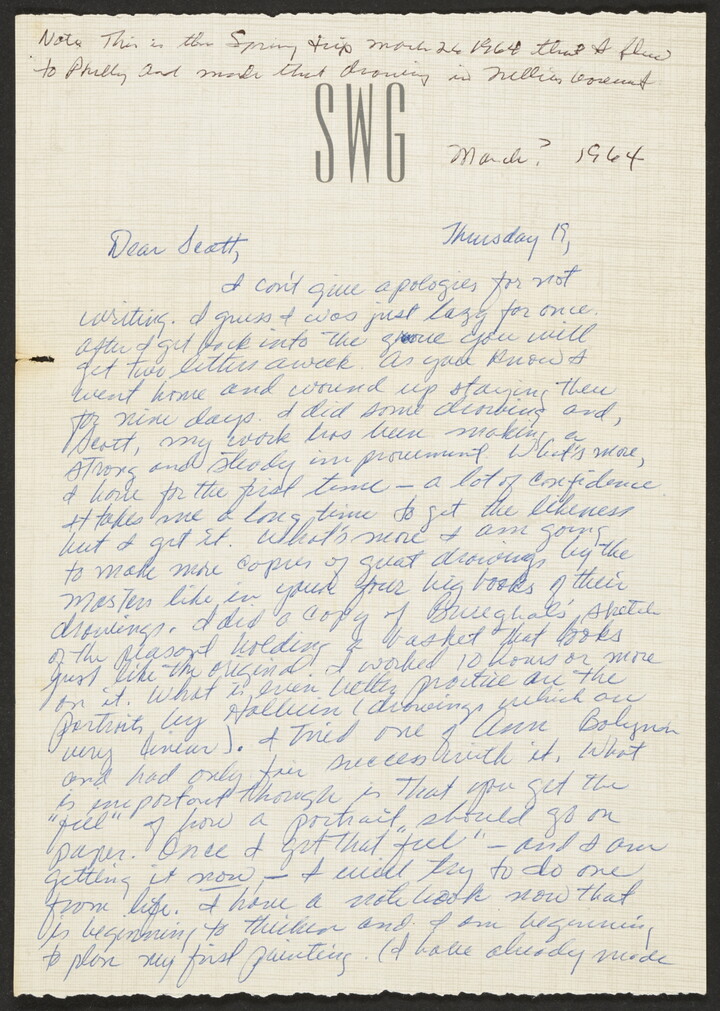 Note This is the Spring trip March 26 1964 that I flew
to Philly and made that drawing in Nellies
SWG
March? 1964
Thursday 19,
Dear Scott,
I can't give apologies for not
writing. I guess I was just lazy for once.
After I get back into the groove you will
get two letters a week. As you know I
went home and wound up staying there
for nine days. I did some drawing and,
Scott, my work has been making a
strong and steady improvement. What's more,
I have for the first time — a lot of confidence
It takes me a long time to get the likeness
but I get it. What's more I am going
to make more copies of great drawings by the
Masters like in your big books of their
drawings. I did a copy of Brueghals' sketch
of the peasant holding a basket that looks
just like the original. I worked 10 hours or more
on it. What is even better practice are the
portraits by Holbein (drawings which are
very linear). I tried one of Ann Bolynn
and had only fair success with it. What
is important though is that you get the
"feel" of how a portrait should go on
paper. Once I get that "feel" — and I am
getting it now — I will try to do one
from life. I have a notebook now that
is beginning to thicken and I am beginning
to plan my first painting. (I have already made